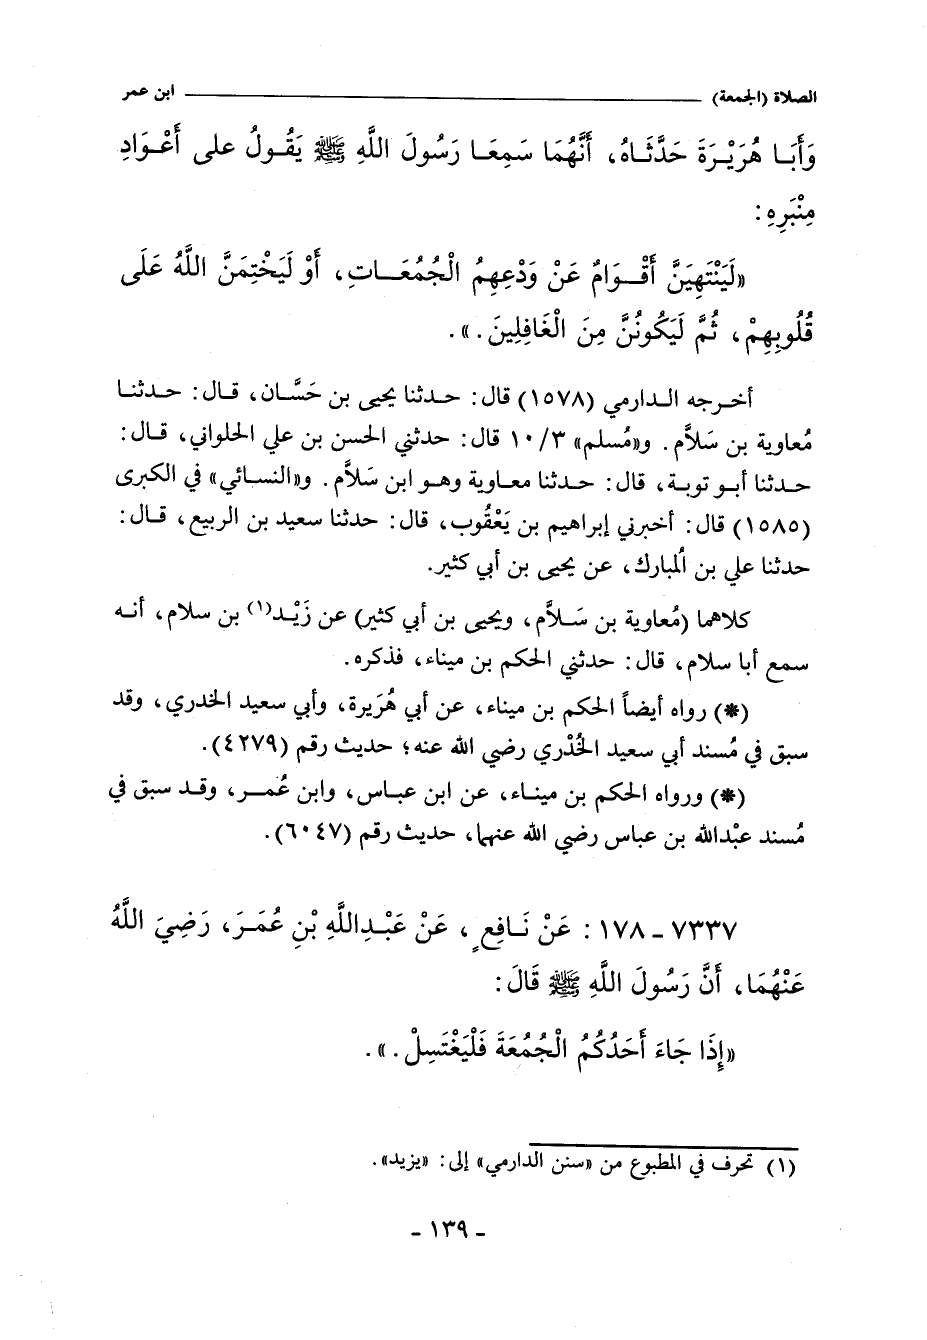 الصلاة (الجمعة) ابن عمر
وَأَبَا هُرَيْرَةَ حَدَّثَاهُ، أَنَّهُمَا سَمِعَا رَسُولَ اللَّهِ ﷺ يَقُولُ على أَعْوَادِ
مِنْبَرِهِ:
«لَيَنْتَهِيَنَّ أَقْوَامٌ عَنْ وَدْعِهِمُ الْجُمُعَاتِ، أَوْ لَيَخْتِمَنَّ اللَّهُ عَلَى
قُلُوبِهِمْ، ثُمَّ لَيَكُونُنَّ مِنَ الْغَافِلِينَ.».
أخرجه الدارمي (١٥٧٨) قال: حدثنا يحيى بن حَسَّان، قال: حدثنا
مُعاوية بن سَلاَّم. و«مُسلم» ١٠/٣ قال: حدثني الحسن بن علي الحلواني، قال:
حدثنا أبو توبة، قال: حدثنا معاوية وهو ابن سَلاَّم. و«النسائي» في الكبرى
(١٥٨٥) قال: أخبرني إبراهيم بن يَعْقُوب، قال: حدثنا سعيد بن الربيع، قال:
حدثنا علي بن المُبارك، عن يحيى بن أبي كثير.
كلاهما (مُعاوية بن سَلاَّم، ويحيى بن أبي كثير) عن زَيْد(١) بن سلام، أنه
سمع أبا سلام، قال: حدثني الحكم بن ميناء، فذكره.
(*) رواه أيضاً الحكم بن ميناء، عن أبي هُرَيرة، وأبي سعيد الخدري، وقد
سبق في مُسند أبي سعيد الخُدْري رضي الله عنه؛ حديث رقم (٤٢٧٩).
(*) ورواه الحكم بن ميناء، عن ابن عباس، وابن عُمر، وقد سبق في
مُسند عبْدالله بن عباس رضي الله عنهما، حديث رقم (٦٠٤٧).
٧٣٣٧ - ١٧٨: عَنْ نَافِعٍ، عَنْ عَبْدِاللَّهِ بْنِ عُمَرَ، رَضِيَ اللَّهُ
عَنْهُمَا، أَنَّ رَسُولَ اللَّهِ ﷺ قَالَ:
«إِذَا جَاءَ أَحَدُكُمُ الْجُمُعَةَ فَلْيَغْتَسِلْ.».
(١) تحرف في المطبوع من «سنن الدارمي» إلى: «يزيد».
- ١٣٩ -